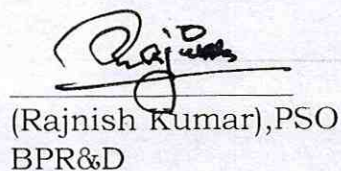 (Rajnish Kumar),PSO
BPR&D